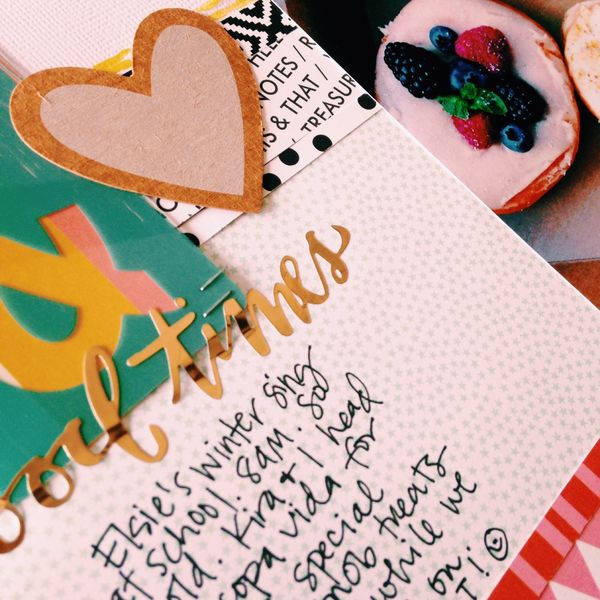 NOTES / R
S & THAT /
TREASUR
&
ood times
Elsie's winter sing
at school. 8am. So
old. Kira + I head
opa vida for
special
treats
while we
on
! ☺